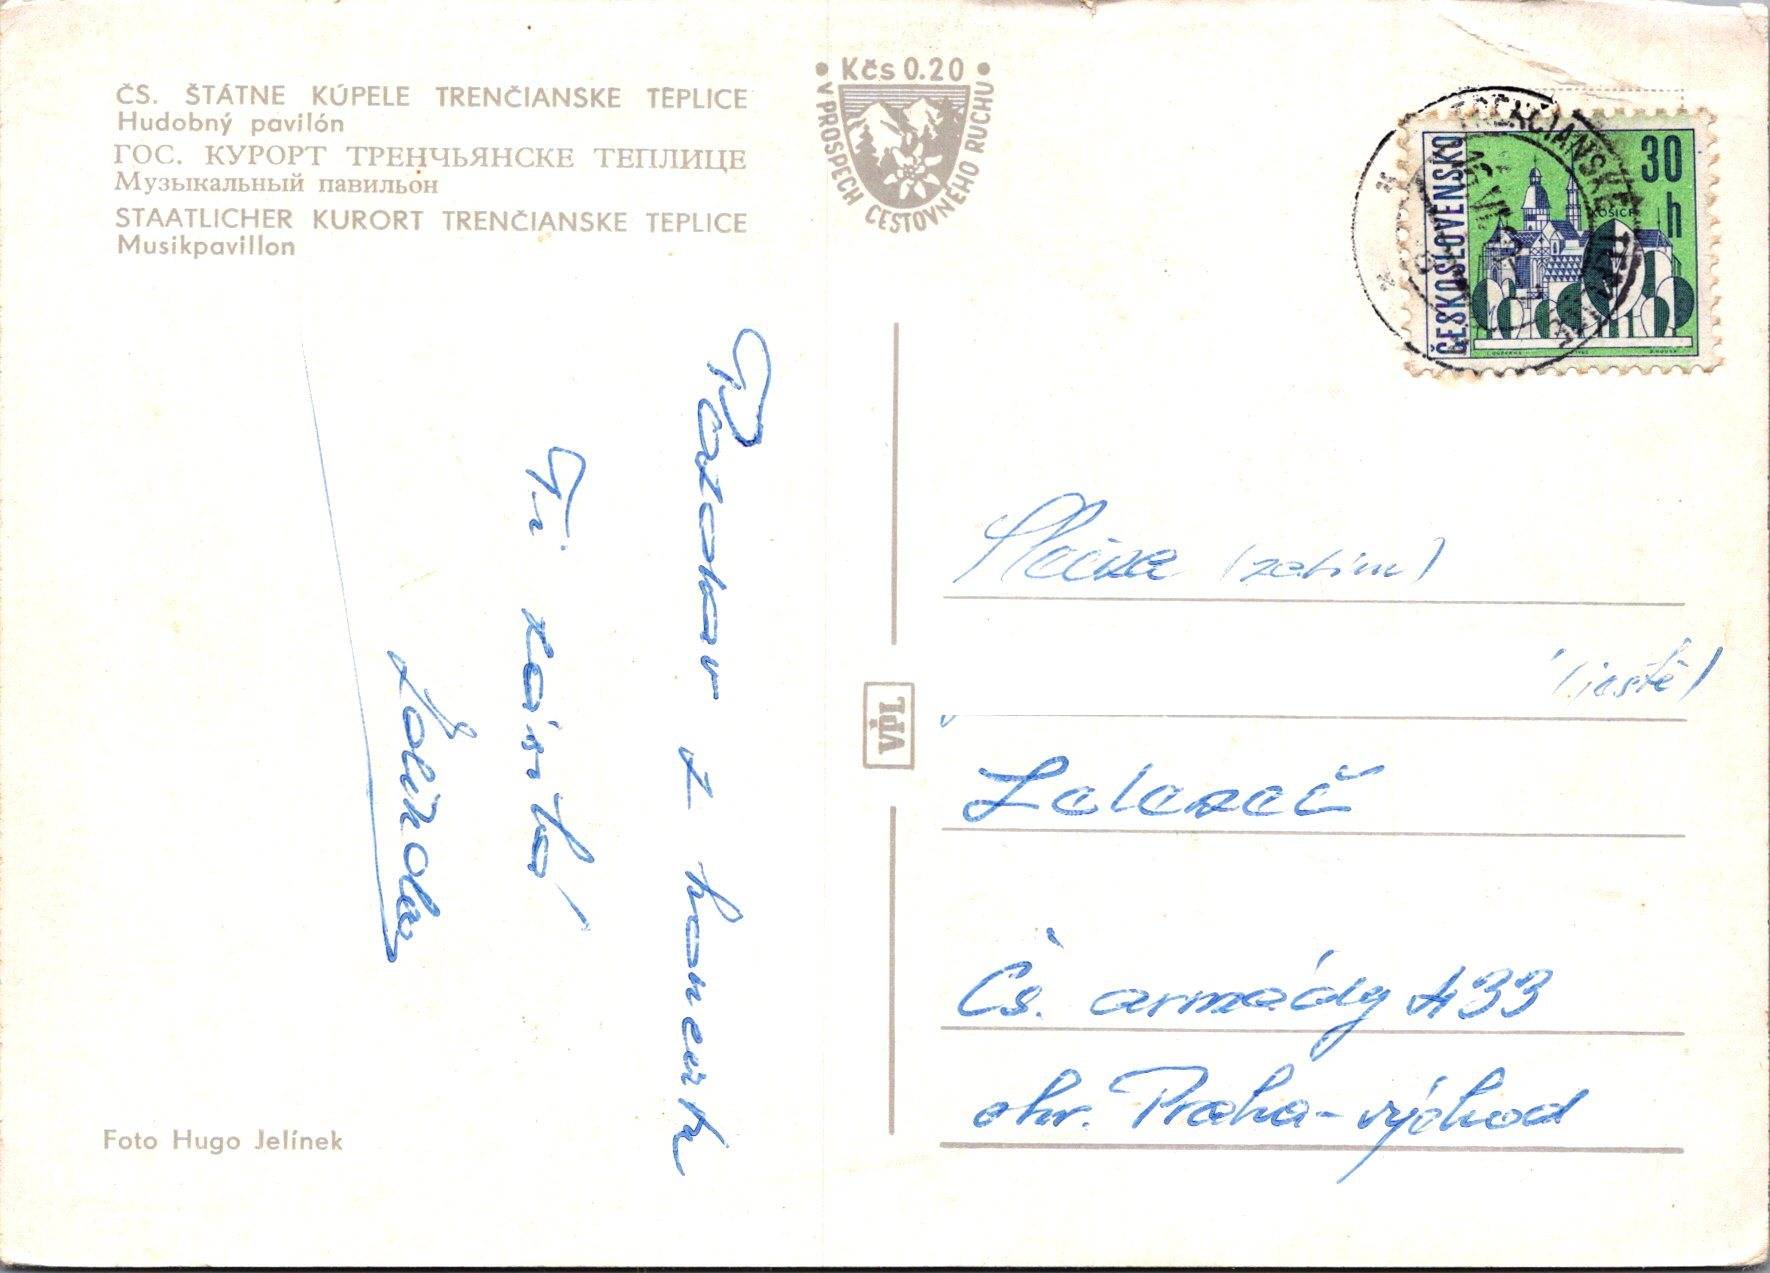 ČS. ŠTÁTNE KÚPELE TRENČIANSKE TEPLICE
Hudobný pavilón
ГОС. КУРОРТ ТРЕНЧЬЯНСКЕ ТЕПЛИЦЕ
Музыкальный павильон
STAATLICHER KURORT TRENČIANSKE TEPLICE
Musikpavillon
• Kčs 0.20 •
V PROSPECH CESTOVNÉHO RUCHU
TRENČIANSKE TEPLICE
ČESKOSLOVENSKO
30 h
KOŠICE
Pozdrav z
Ti
Foto Hugo Jelínek
VPL
(zatím)
(ještě)
Čs. armády 433
okr. Praha-východ